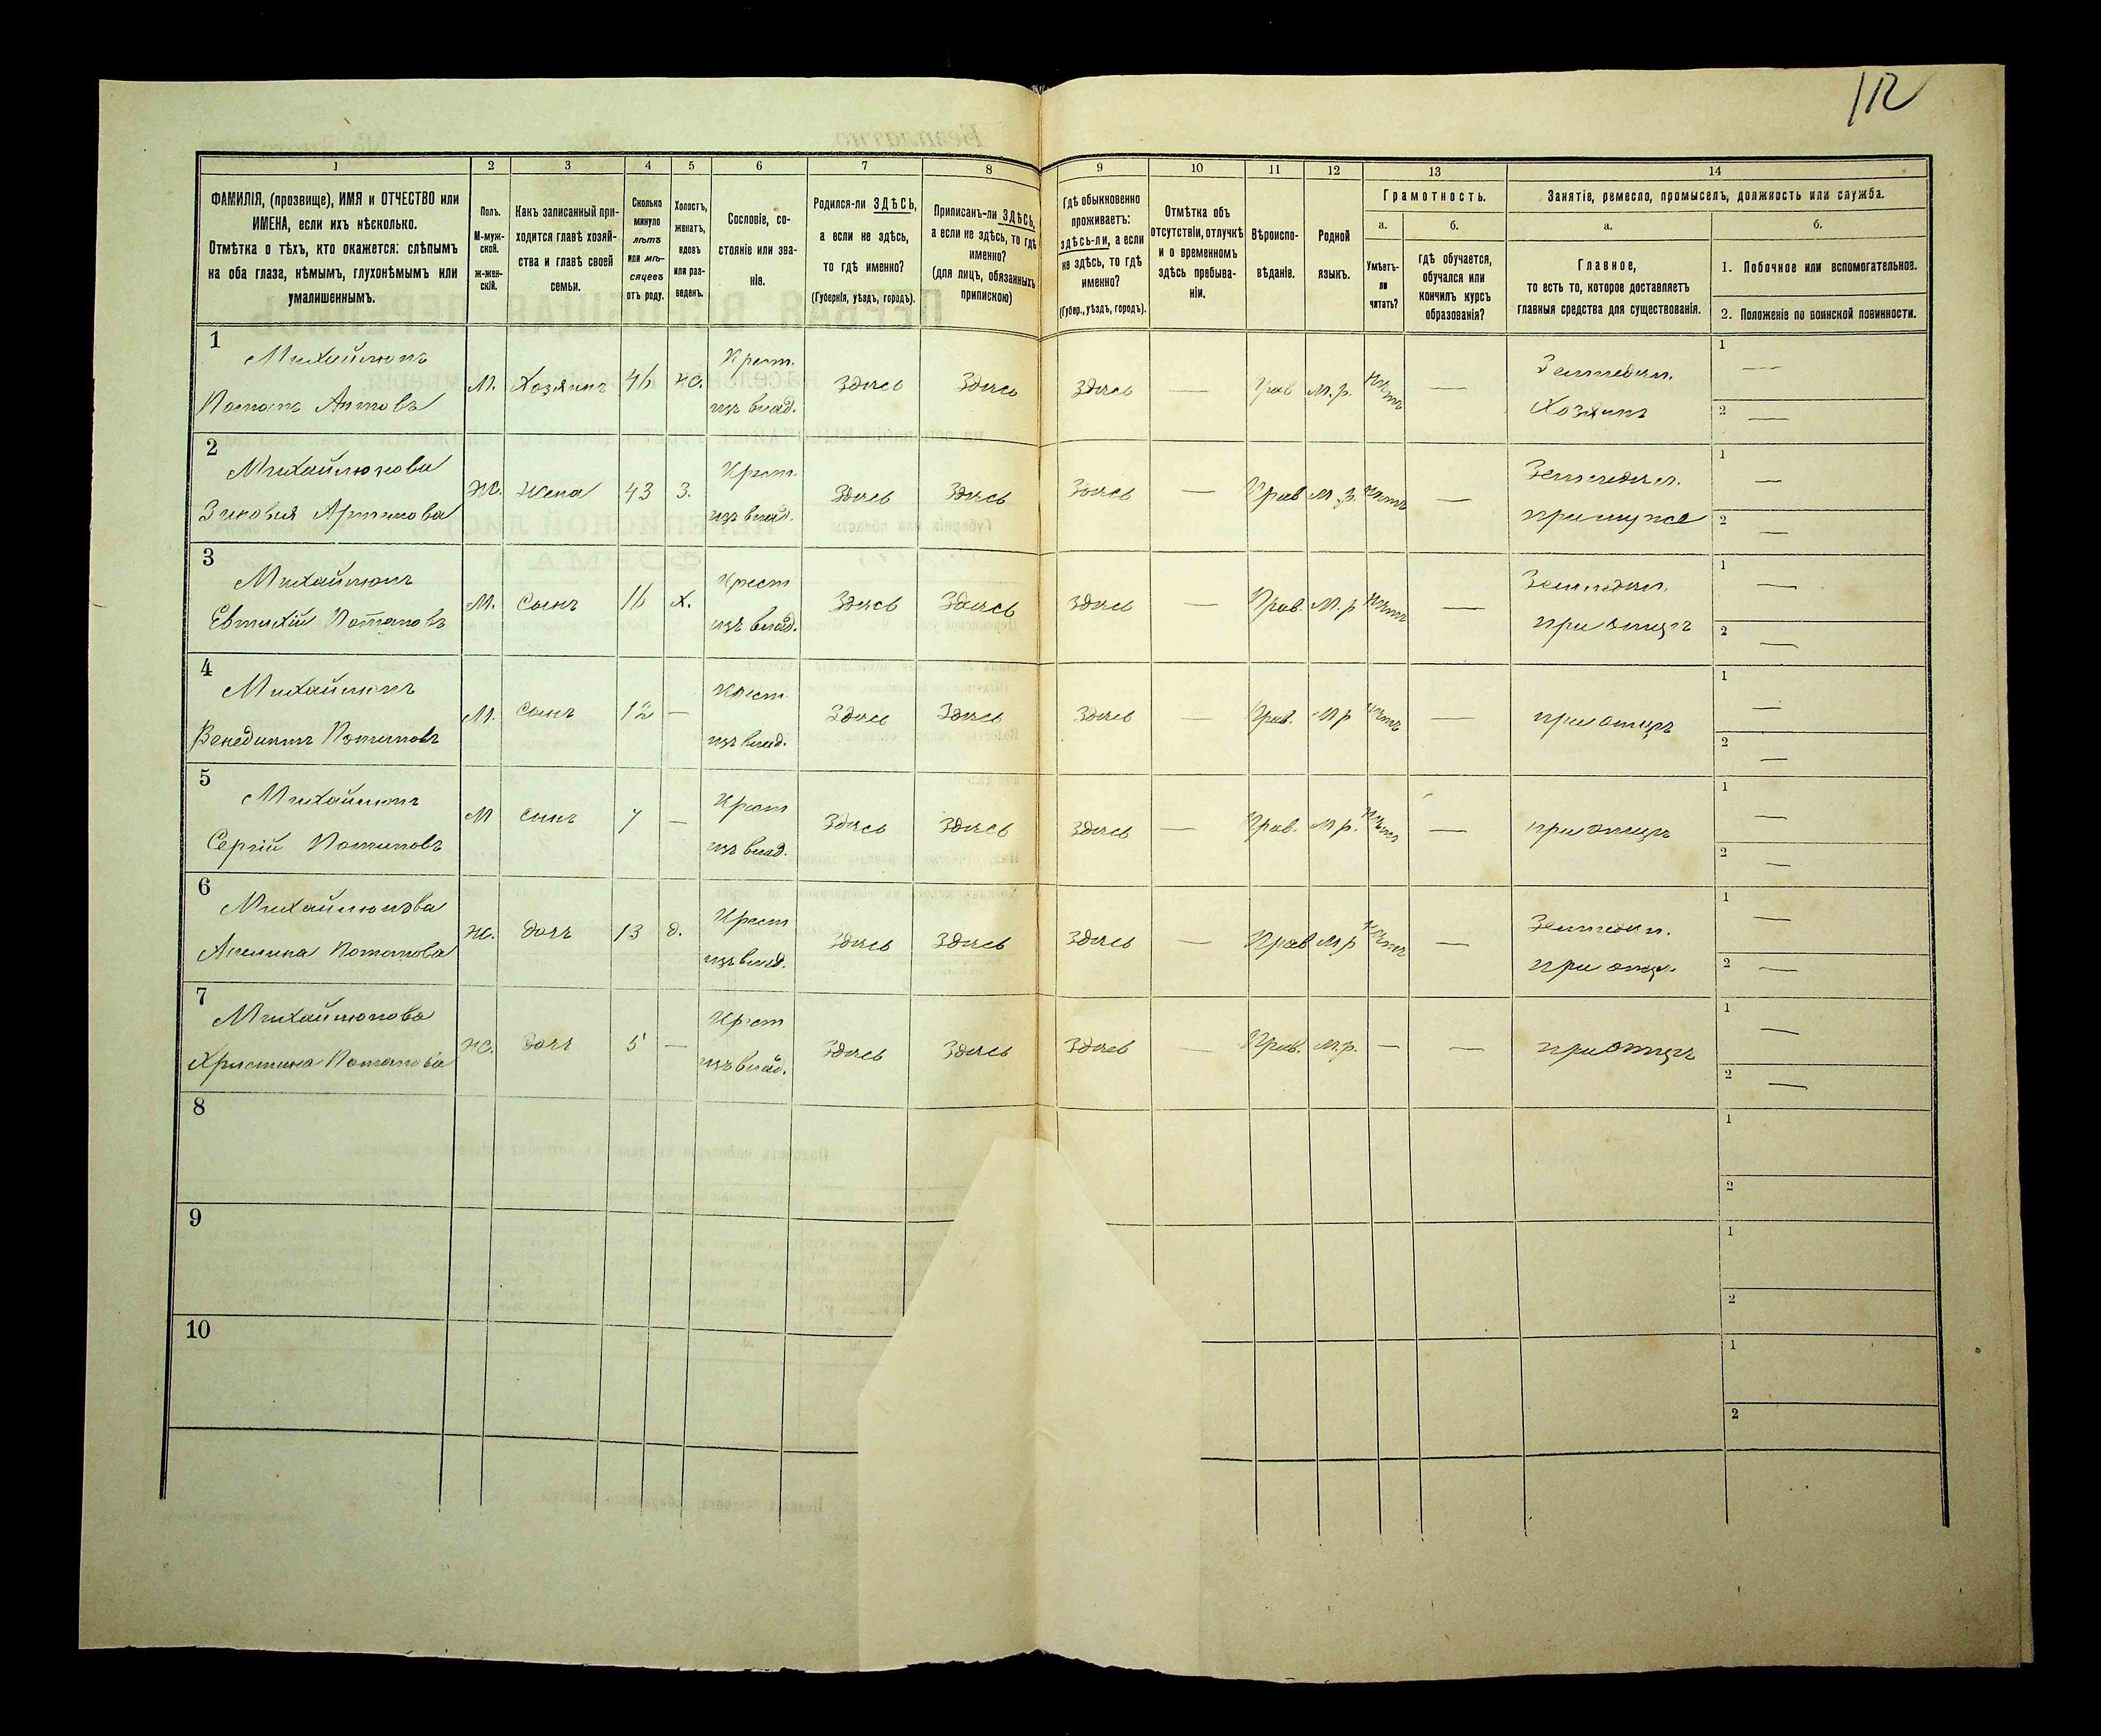 112
1 2 3 4 5 6 7 8 9 10 11 12 13 14
ФАМИЛІЯ, (прозвище), ИМЯ и ОТЧЕСТВО или
ИМЕНА, если ихъ нѣсколько.
Отмѣтка о тѣхъ, кто окажется: слѣпымъ
на оба глаза, нѣмымъ, глухонѣмымъ или
умалишеннымъ.
Полъ.
М-муж-
ской.
ж-жен-
скій.
Какъ записанный при-
ходится главѣ хозяй-
ства и главѣ своей
семьи.
Сколько
минуло
лѣтъ
или мѣ-
сяцевъ
отъ роду.
Холостъ,
женатъ,
вдовъ
или раз-
веденъ.
Сословіе, со-
стояніе или зва-
ніе.
Родился-ли ЗДѢСЬ,
а если не здѣсь,
то гдѣ именно?
(Губернія, уѣздъ, городъ).
Приписанъ-ли ЗДѢСЬ,
а если не здѣсь, то гдѣ
именно?
(для лицъ, обязанныхъ
припискою)
Гдѣ обыкновенно
проживаетъ:
здѣсь-ли, а если
не здѣсь, то гдѣ
именно?
(Губер., уѣздъ, городъ).
Отмѣтка объ
отсутствіи, отлучкѣ
и о временномъ
здѣсь пребыва-
ніи.
Вѣроиспо-
вѣданіе.
Родной
языкъ.
Грамотность.
а.
Умѣетъ-
ли
читать?
б.
гдѣ обучается,
обучался или
кончилъ курсъ
образованія?
Занятіе, ремесло, промыселъ, должность или служба.
а.
Главное,
то есть то, которое доставляетъ
главныя средства для существованія.
б.
1. Побочное или вспомогательное.
2. Положеніе по воинской повинности.
1
Михайлюкъ
Потапъ Антовъ
М. Хозяинъ 46 ж. Крест. изъ влад. Здѣсь Здѣсь Здѣсь — Прав М.р. Нѣтъ — Земледѣл. Хозяинъ 1 — 2 —
2
Михайлюкова
Зиновія Артемова
Ж. Жена 43 З. Крест. изъ влад. Здѣсь Здѣсь Здѣсь — Прав М.р. Нѣтъ — Земледѣл. при мужѣ 1 — 2 —
3
Михайлюкъ
Евтихій Потаповъ
М. Сынъ 16 х. Крест изъ влад. Здѣсь Здѣсь Здѣсь — Прав. М.р Нѣтъ — Земледѣл. при отцѣ 1 — 2 —
4
Михайлюкъ
Венедиктъ Потаповъ
М. Сынъ 12 — Крест изъ влад. Здѣсь Здѣсь Здѣсь — Прав. М р Нѣтъ — при отцѣ 1 — 2 —
5
Михайлюкъ
Сергій Потаповъ
М Сынъ 7 — Крест изъ влад. Здѣсь Здѣсь Здѣсь — Прав. М р. Нѣтъ — при отцѣ 1 — 2 —
6
Михайлюкова
Потапова
Ж. дочь 13 д. Крест изъ влад. Здѣсь Здѣсь Здѣсь — Прав М р Нѣтъ — Земледѣл. при отцѣ 1 — 2 —
7
Михайлюкова
Христина Потапова
Ж. дочь 5 — Крест изъ влад. Здѣсь Здѣсь Здѣсь — Прав. М.р. — — при отцѣ 1 — 2 —
8 1 2
9 1 2
10 1 2